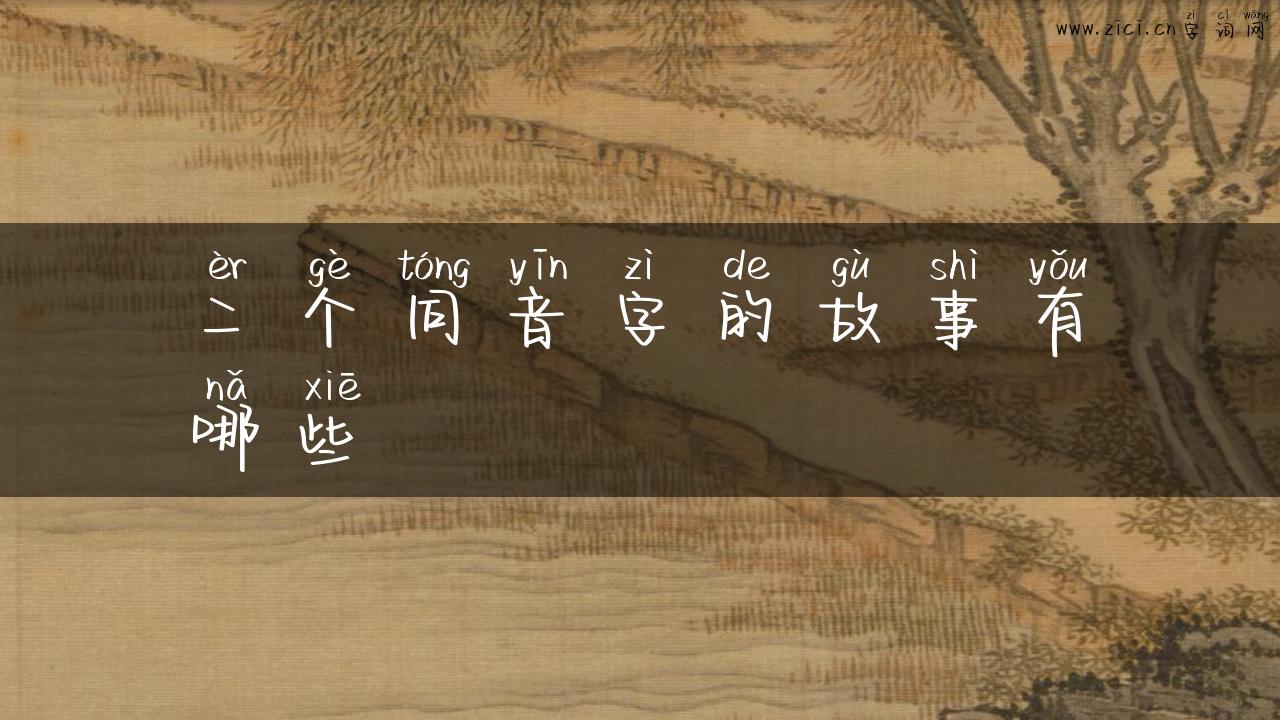 zì cí wǎng
www.zici.cn字词网
èr gè tóng yīn zì de gù shì yǒu
二个同音字的故事有
nǎ xiē
哪些